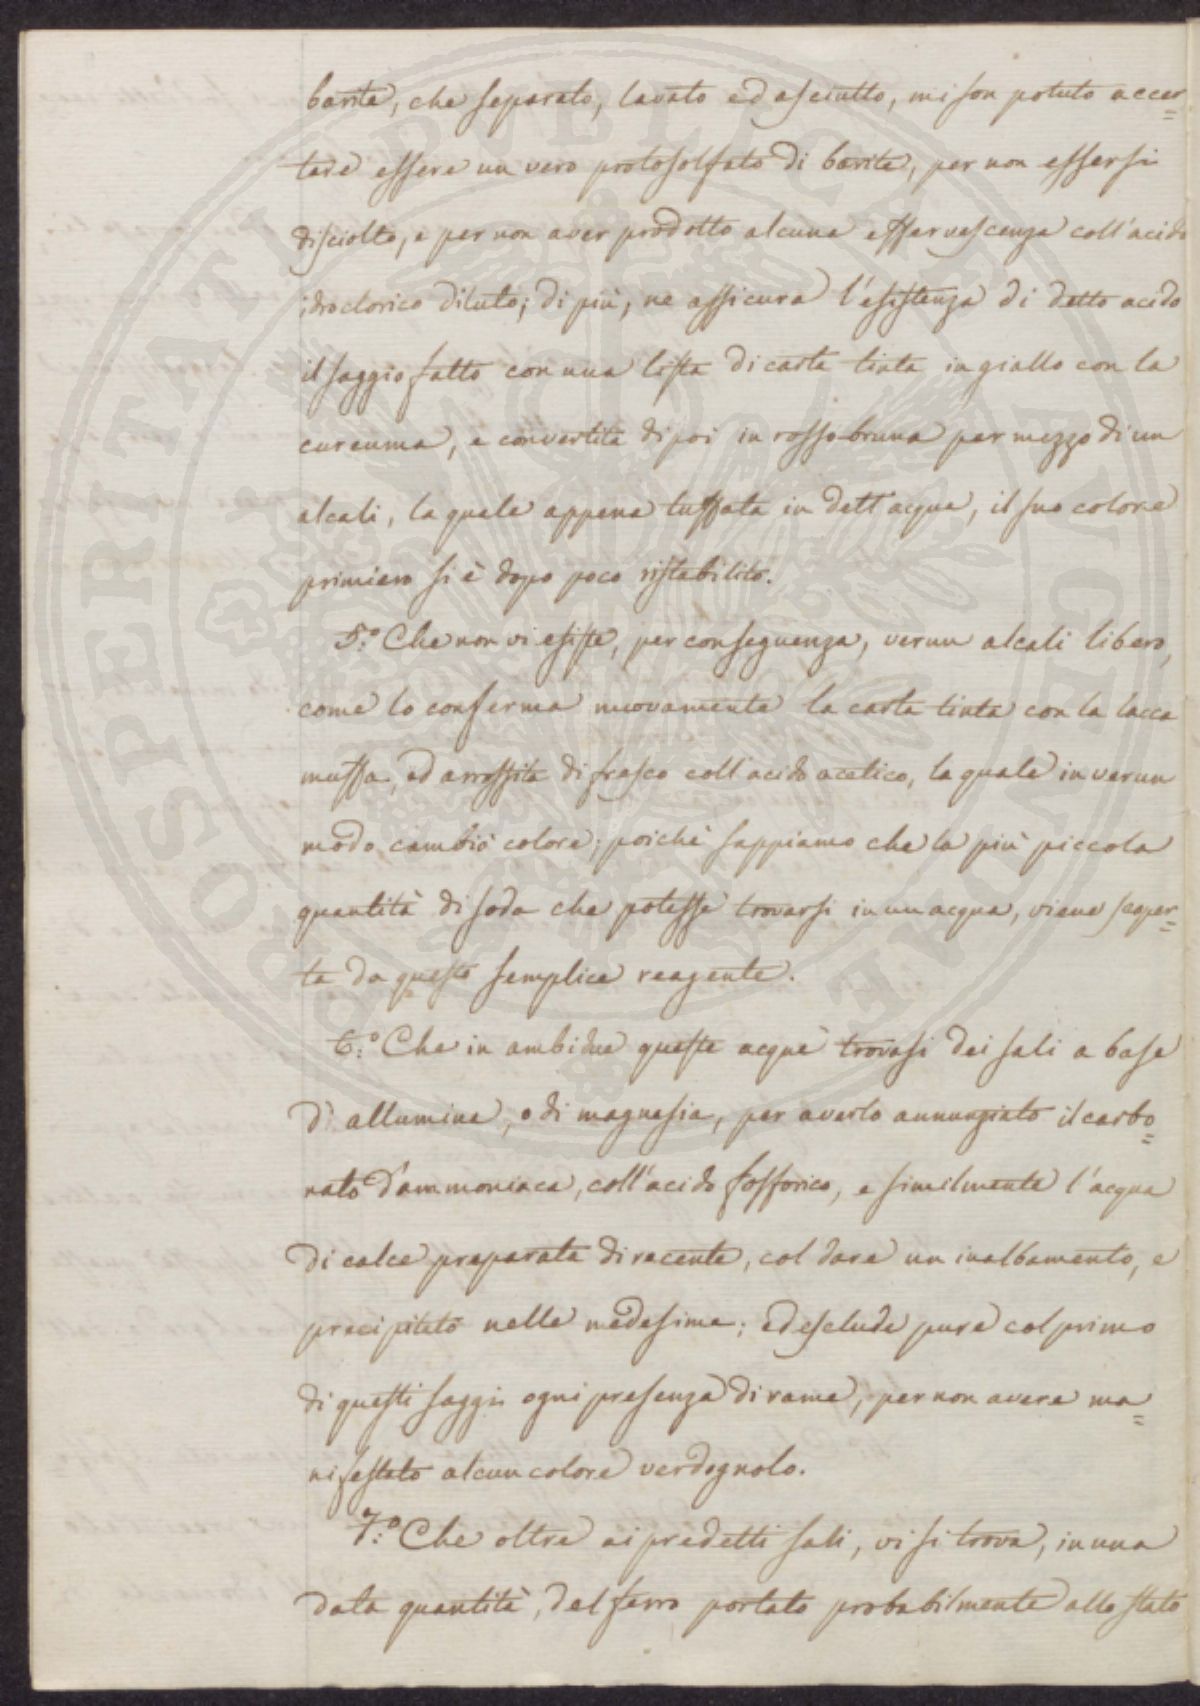 barite, che separato, lavato ed asciutto, mi son potuto accer=
tare essere un vero protosolfato di barite, per non essersi
disciolto, e per non aver prodotto alcuna effervescenza coll'acido
idroclorico diluto; di più, ne assicura l'esistenza di detto acido
il saggio fatto con una lista di carta tinta in giallo con la
curcuma, e convertita di poi in rosso-bruna per mezzo di un
alcali, la quale appena tuffata in dett'acqua, il suo colore
primiero si è dopo poco ristabilito.
5.º Che non vi esiste, per conseguenza, verun alcali libero,
come lo conferma nuovamente la carta tinta con la lacca
muffa, ed arrossita di fresco coll'acido acetico, la quale in verun
modo cambiò colore; poichè sappiamo che la più piccola
quantità di soda che potesse trovarsi in un acqua, viene scoper=
ta da questo semplice reagente.
6.º Che in ambidue queste acque trovasi dei sali a base
d'allumina, o di magnesia, per averlo annunziato il carbo=
nato d'ammoniaca, coll'acido fosforico, e similmente l'acqua
di calce preparata di recente, col dare un inalbamento, e
precipitato nelle medesime; ed esclude pure col primo
di questi saggi ogni presenza di rame, per non avere ma=
nifestato alcun colore verdognolo.
7.º Che oltre ai predetti sali, vi si trova, in una
data quantità, del ferro portato probabilmente allo stato
PROSPERITATI PVBLICAE AVGENDAE